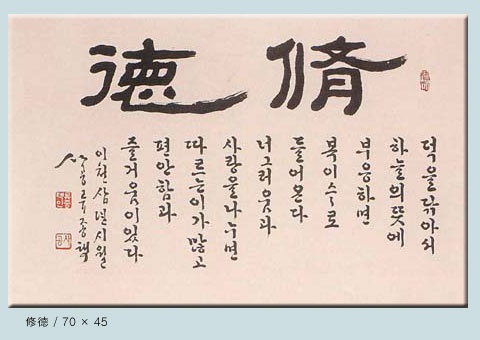 脩德
덕을 닦아서
하늘의 뜻에
부응하면
복이 수로
들어온다
너그러움과
사랑을 나누면
따르는 이가 많고
편안함과
즐거움이 있다
이천삼년 시월
修德 / 70 × 45